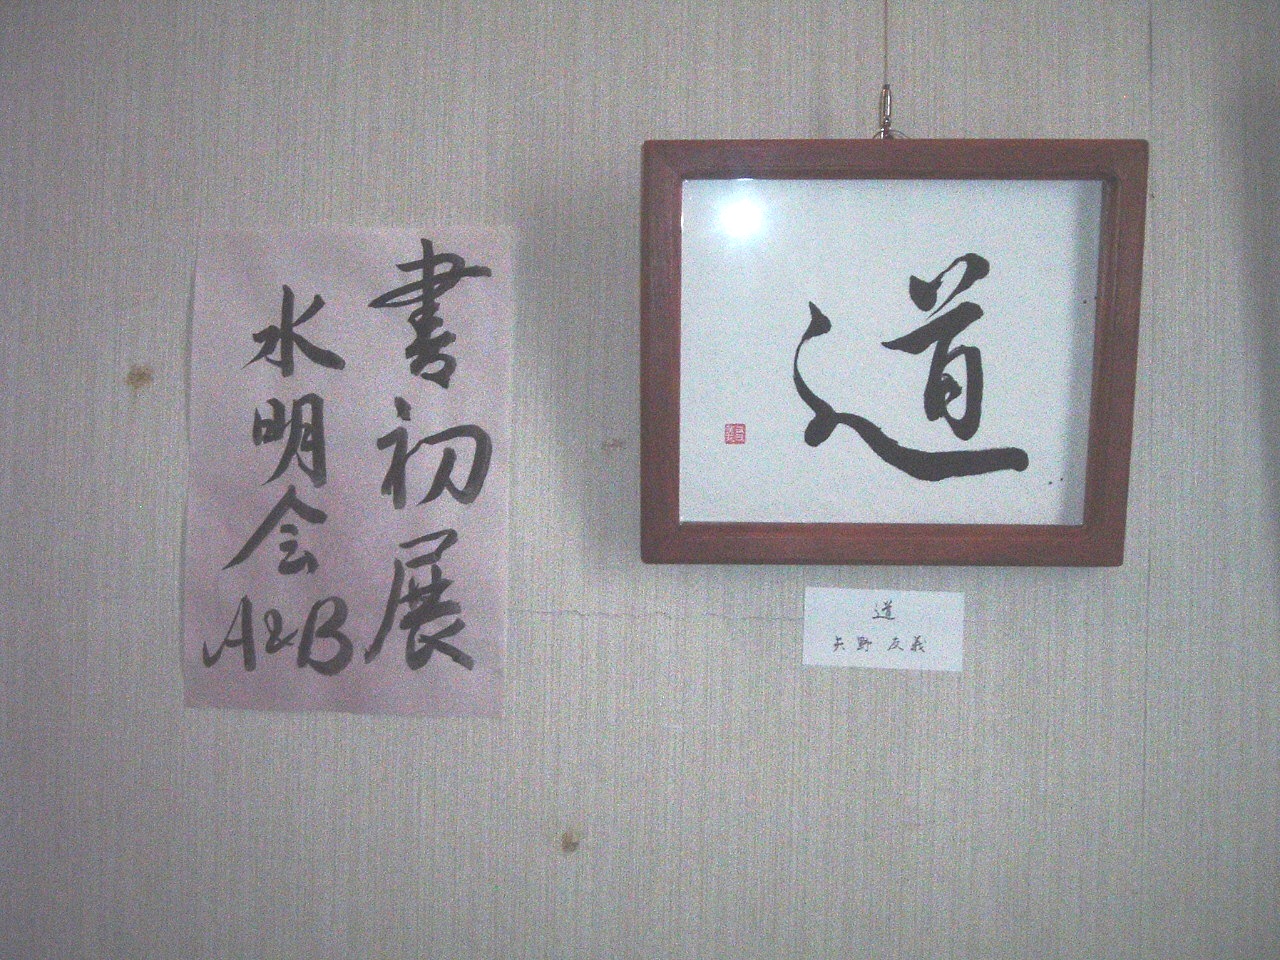 書初展
水明会
A&B
道
道
矢野友義